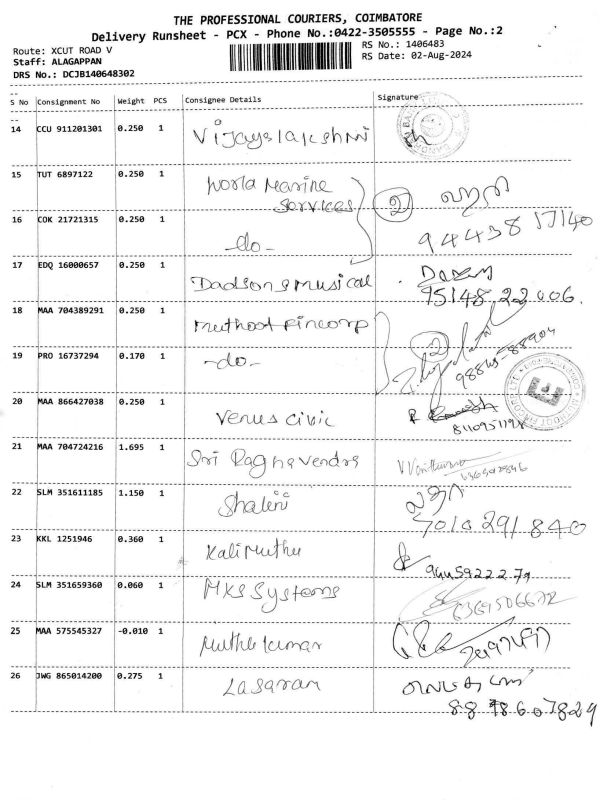 THE PROFESSIONAL COURIERS, COIMBATORE
Delivery Runsheet - PCX - Phone No.:0422-3505555 - Page No.:2
Route: XCUT ROAD V
RS No.: 1406483
Staff: ALAGAPPAN
RS Date: 02-Aug-2024
DRS No.: DCJB140648302
S No Consignment No Weight PCS Consignee Details Signature
14 CCU 911201301 0.250 1 Vijayslakshmi
15 TUT 6897122 0.250 1 World Marine Services 2
16 COK 21721315 0.250 1 -do- 94438 17140
17 EDQ 16000657 0.250 1 Dadsons musical 95148 22006.
18 MAA 704389291 0.250 1 muthoot Fincorp 2
19 PRO 16737294 0.170 1 -do- 98845-88904
20 MAA 866427038 0.250 1 Venus civic
21 MAA 704724216 1.695 1 Sri Raghavendra
22 SLM 351611185 1.150 1 Shalini 7010 291 840
23 KKL 1251946 0.360 1 Kali Muthu
24 SLM 351659360 0.060 1 MKS Systems
25 MAA 575545327 -0.010 1 Muthu kumar
26 JWG 865014200 0.275 1 Lasaram 88 78607829